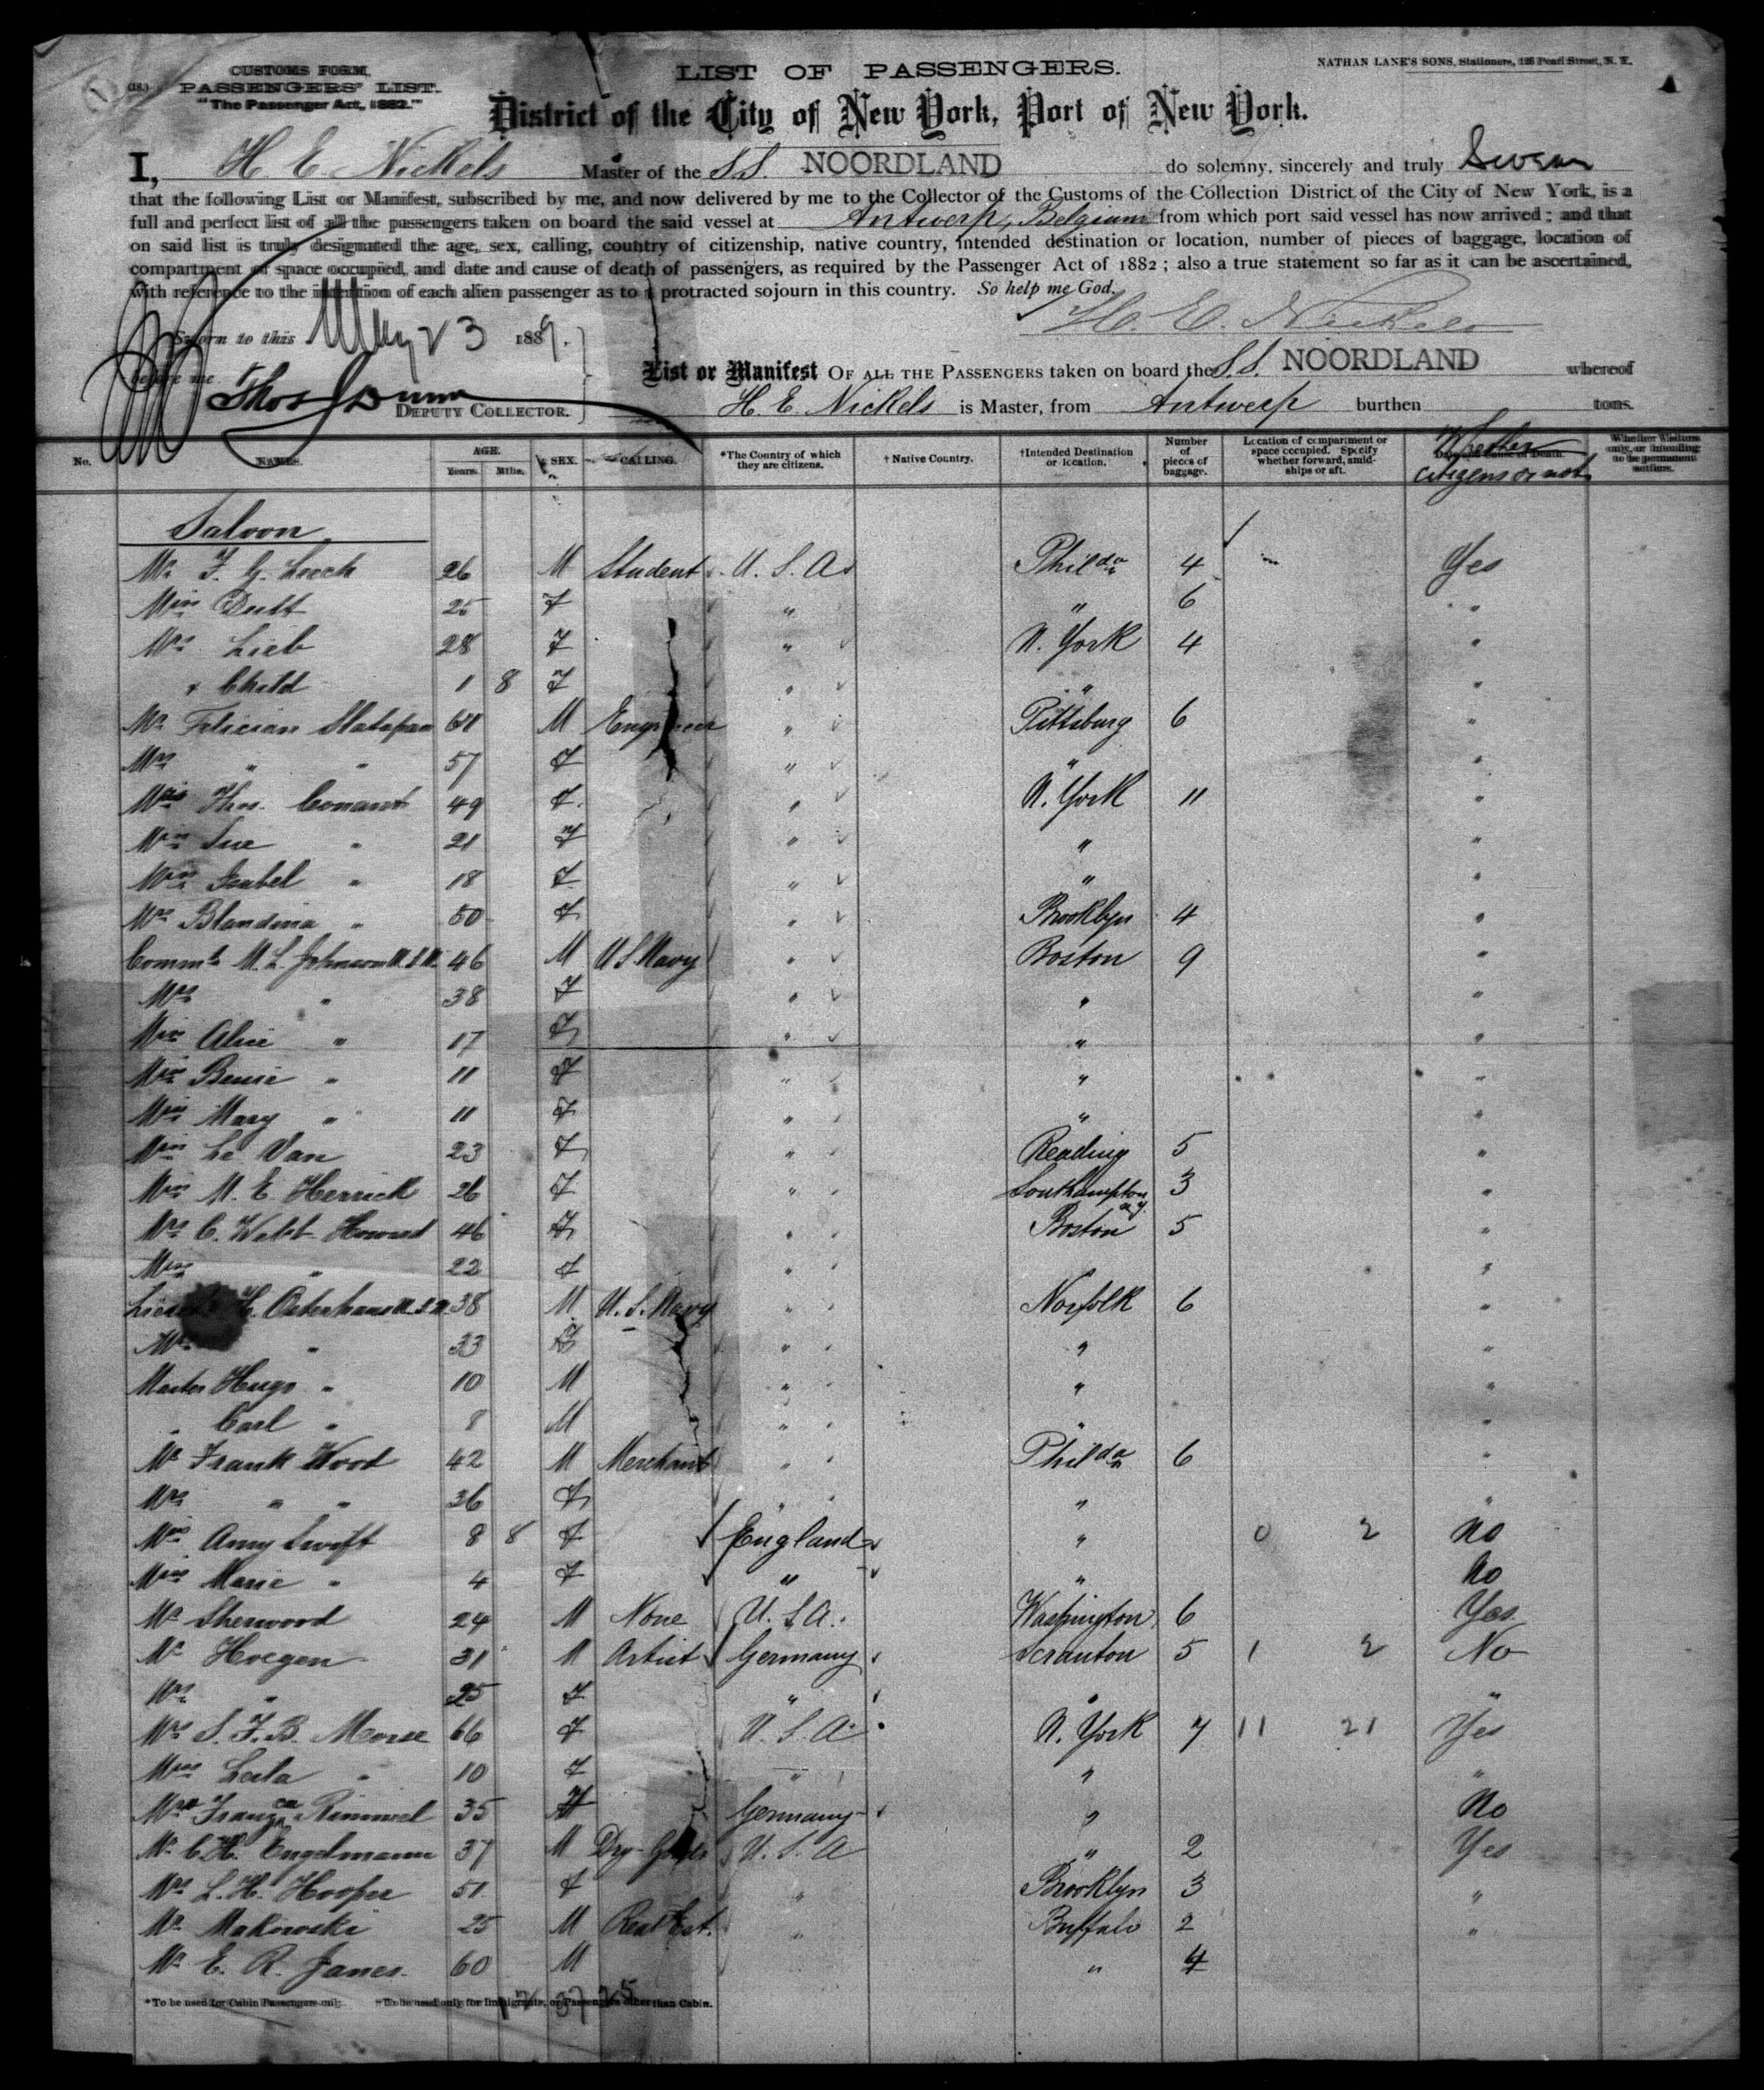 CUSTOMS FORM.
(18.) PASSENGERS' LIST.
"The Passenger Act, 1882."
LIST OF PASSENGERS.
NATHAN LANE'S SONS, Stationers, Pearl Street, N. Y.
District of the City of New York, Port of New York.
I, H. E. Nickels Master of the S.S. NOORDLAND do solemny, sincerely and truly Swear
that the following List or Manifest, subscribed by me, and now delivered by me to the Collector of the Customs of the Collection District of the City of New York, is a
full and perfect list of all the passengers taken on board the said vessel at Antwerp, Belgium from which port said vessel has now arrived; and that
on said list is truly designated the age, sex, calling, country of citizenship, native country, intended destination or location, number of pieces of baggage, location of
compartment or space occupied, and date and cause of death of passengers, as required by the Passenger Act of 1882; also a true statement so far as it can be ascertained,
with reference to the intention of each alien passenger as to a protracted sojourn in this country. So help me God.
H. E. Nickels
Sworn to this May 23 1889.
before me
Thos J Dunn
DEPUTY COLLECTOR.
List or Manifest OF ALL THE PASSENGERS taken on board the S.S. NOORDLAND whereof
H. E. Nickels is Master, from Antwerp burthen tons.
No. NAMES. AGE. Years. Mths. SEX. CALLING. *The Country of which they are citizens. †Native Country. †Intended Destination or location. Number of pieces of baggage. Location of compartment or space occupied. Specify whether forward, amidships or aft. Whether citizens or not
Saloon
Mr F. G. Leech 26 M Student U. S. A. Philda 4 Yes
Miss Dutt 25 F " " 6 "
Mrs Lieb 28 F " N. York 4 "
& Child 1 8 F " " "
Mr Felician 61 M Engineer " Pittsburg 6 "
Mrs " " 57 F " " "
Mrs Thos. Conant 49 F. " N. York 11 "
Miss Sue " 21 F " " "
Miss Isabel " 18 F " " "
Mrs Blandina " 50 F " Brooklyn 4 "
Commdr M. L. Johnson U.S.N. 46 M U S Navy " Boston 9 "
Mrs " 38 F " " "
Miss Alice " 17 F " " "
Miss Bessie " 11 F " " "
Miss Mary " 11 F " " "
Miss Le Van 23 F " Reading 5 "
Miss M. E. Herrick 26 F " Southampton N.Y. 3 "
Mrs C. Webb Howard 46 F " Boston 5 "
Miss " 22 F " "
Lieut H. Osterhaus U.S.N. 38 M U. S. Navy " Norfolk 6 "
Mrs " 33 F " " "
Master Hugo " 10 M " " "
" Carl " 8 M " " "
Mr Frank Wood 42 M Merchant " Philda 6 "
Mrs " " 36 F " " "
Miss Amy Swift 8 8 F England " 0 2 No
Miss Marie " 4 F " " No
Mr Sherwood 24 M None U. S. A. Washington 6 Yes
Mr Hoegen 31 M Artist Germany Scranton 5 1 2 No
Mrs " 25 F " " "
Mrs S. F. B. Morse 66 F U. S. A. N. York 7 11 21 Yes
Miss Leila " 10 F " " "
Mrs Franzca Rimmel 35 F Germany " No
Mr C. H. Engelmann 37 M Dry-Goods U. S. A " 2 Yes
Mrs L. H. Hooper 51 F " Brooklyn 3 "
Mr Makowski 25 M Real Est. " Buffalo 2 "
Mr E. R. Janes. 60 M " 4
*To be used for Cabin Passengers only. †To be used only for Immigrants, or Passengers other than Cabin.
12 37 25